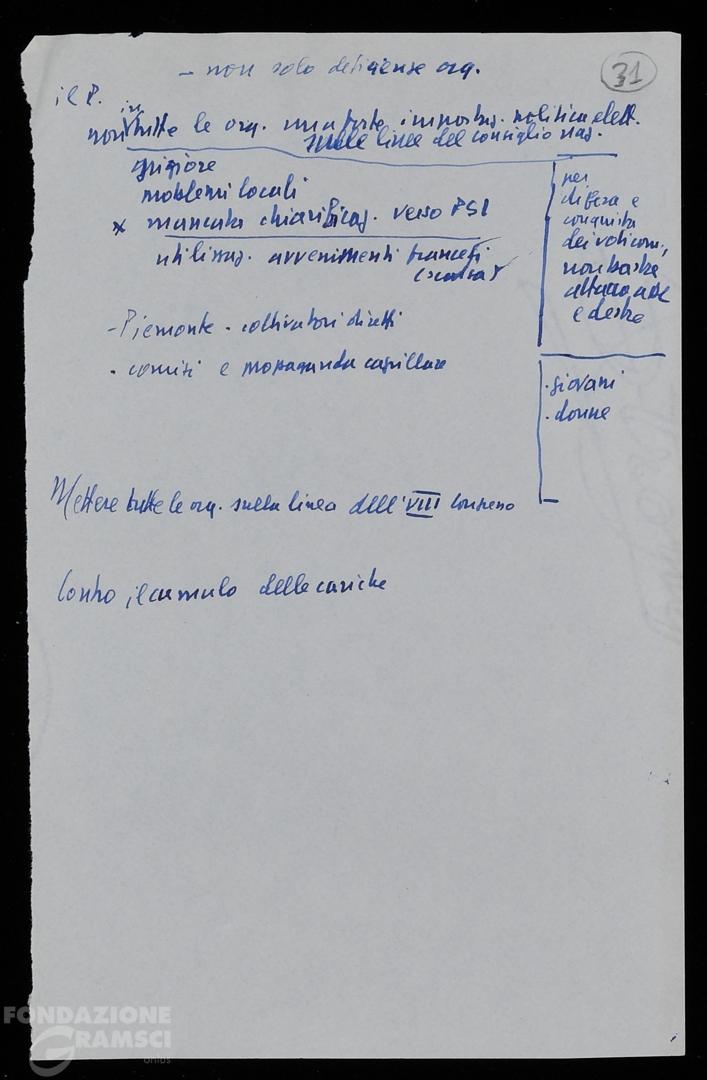 - non solo deficienze org.
31
il P.
in
non tutte le org. una forte impostaz. politica elett.
sulle linee del consiglio naz.
grigiore
problemi locali
x mancata chiarificaz. verso PSI
utilizzaz. avvenimenti francesi
(scarsa)
- Piemonte - coltivatori diretti
- comizi e propaganda capillare
per
difesa e
conquista
dei voti com.,
non basta
attacco a DC
e destre
- giovani
- donne
Mettere tutte le org. sulla linea dell'VIII Congresso
Contro il cumulo delle cariche
FONDAZIONE
GRAMSCI
onlus